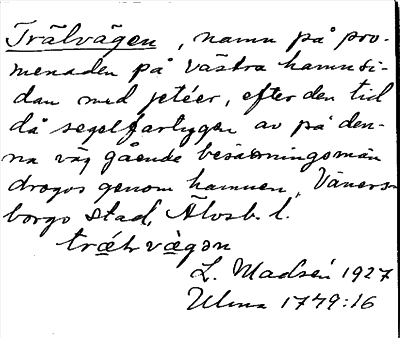 Trälvägen, namn på pro-
menaden på västra hamnsi-
dan med jetéer, efter den tid
då segelfartygen av på den-
na väg gående besättningsmän
drogos genom hamnen, Väners-
borgs stad, Älvsb. l.
L. Madsén 1927
Ulma 1779:16